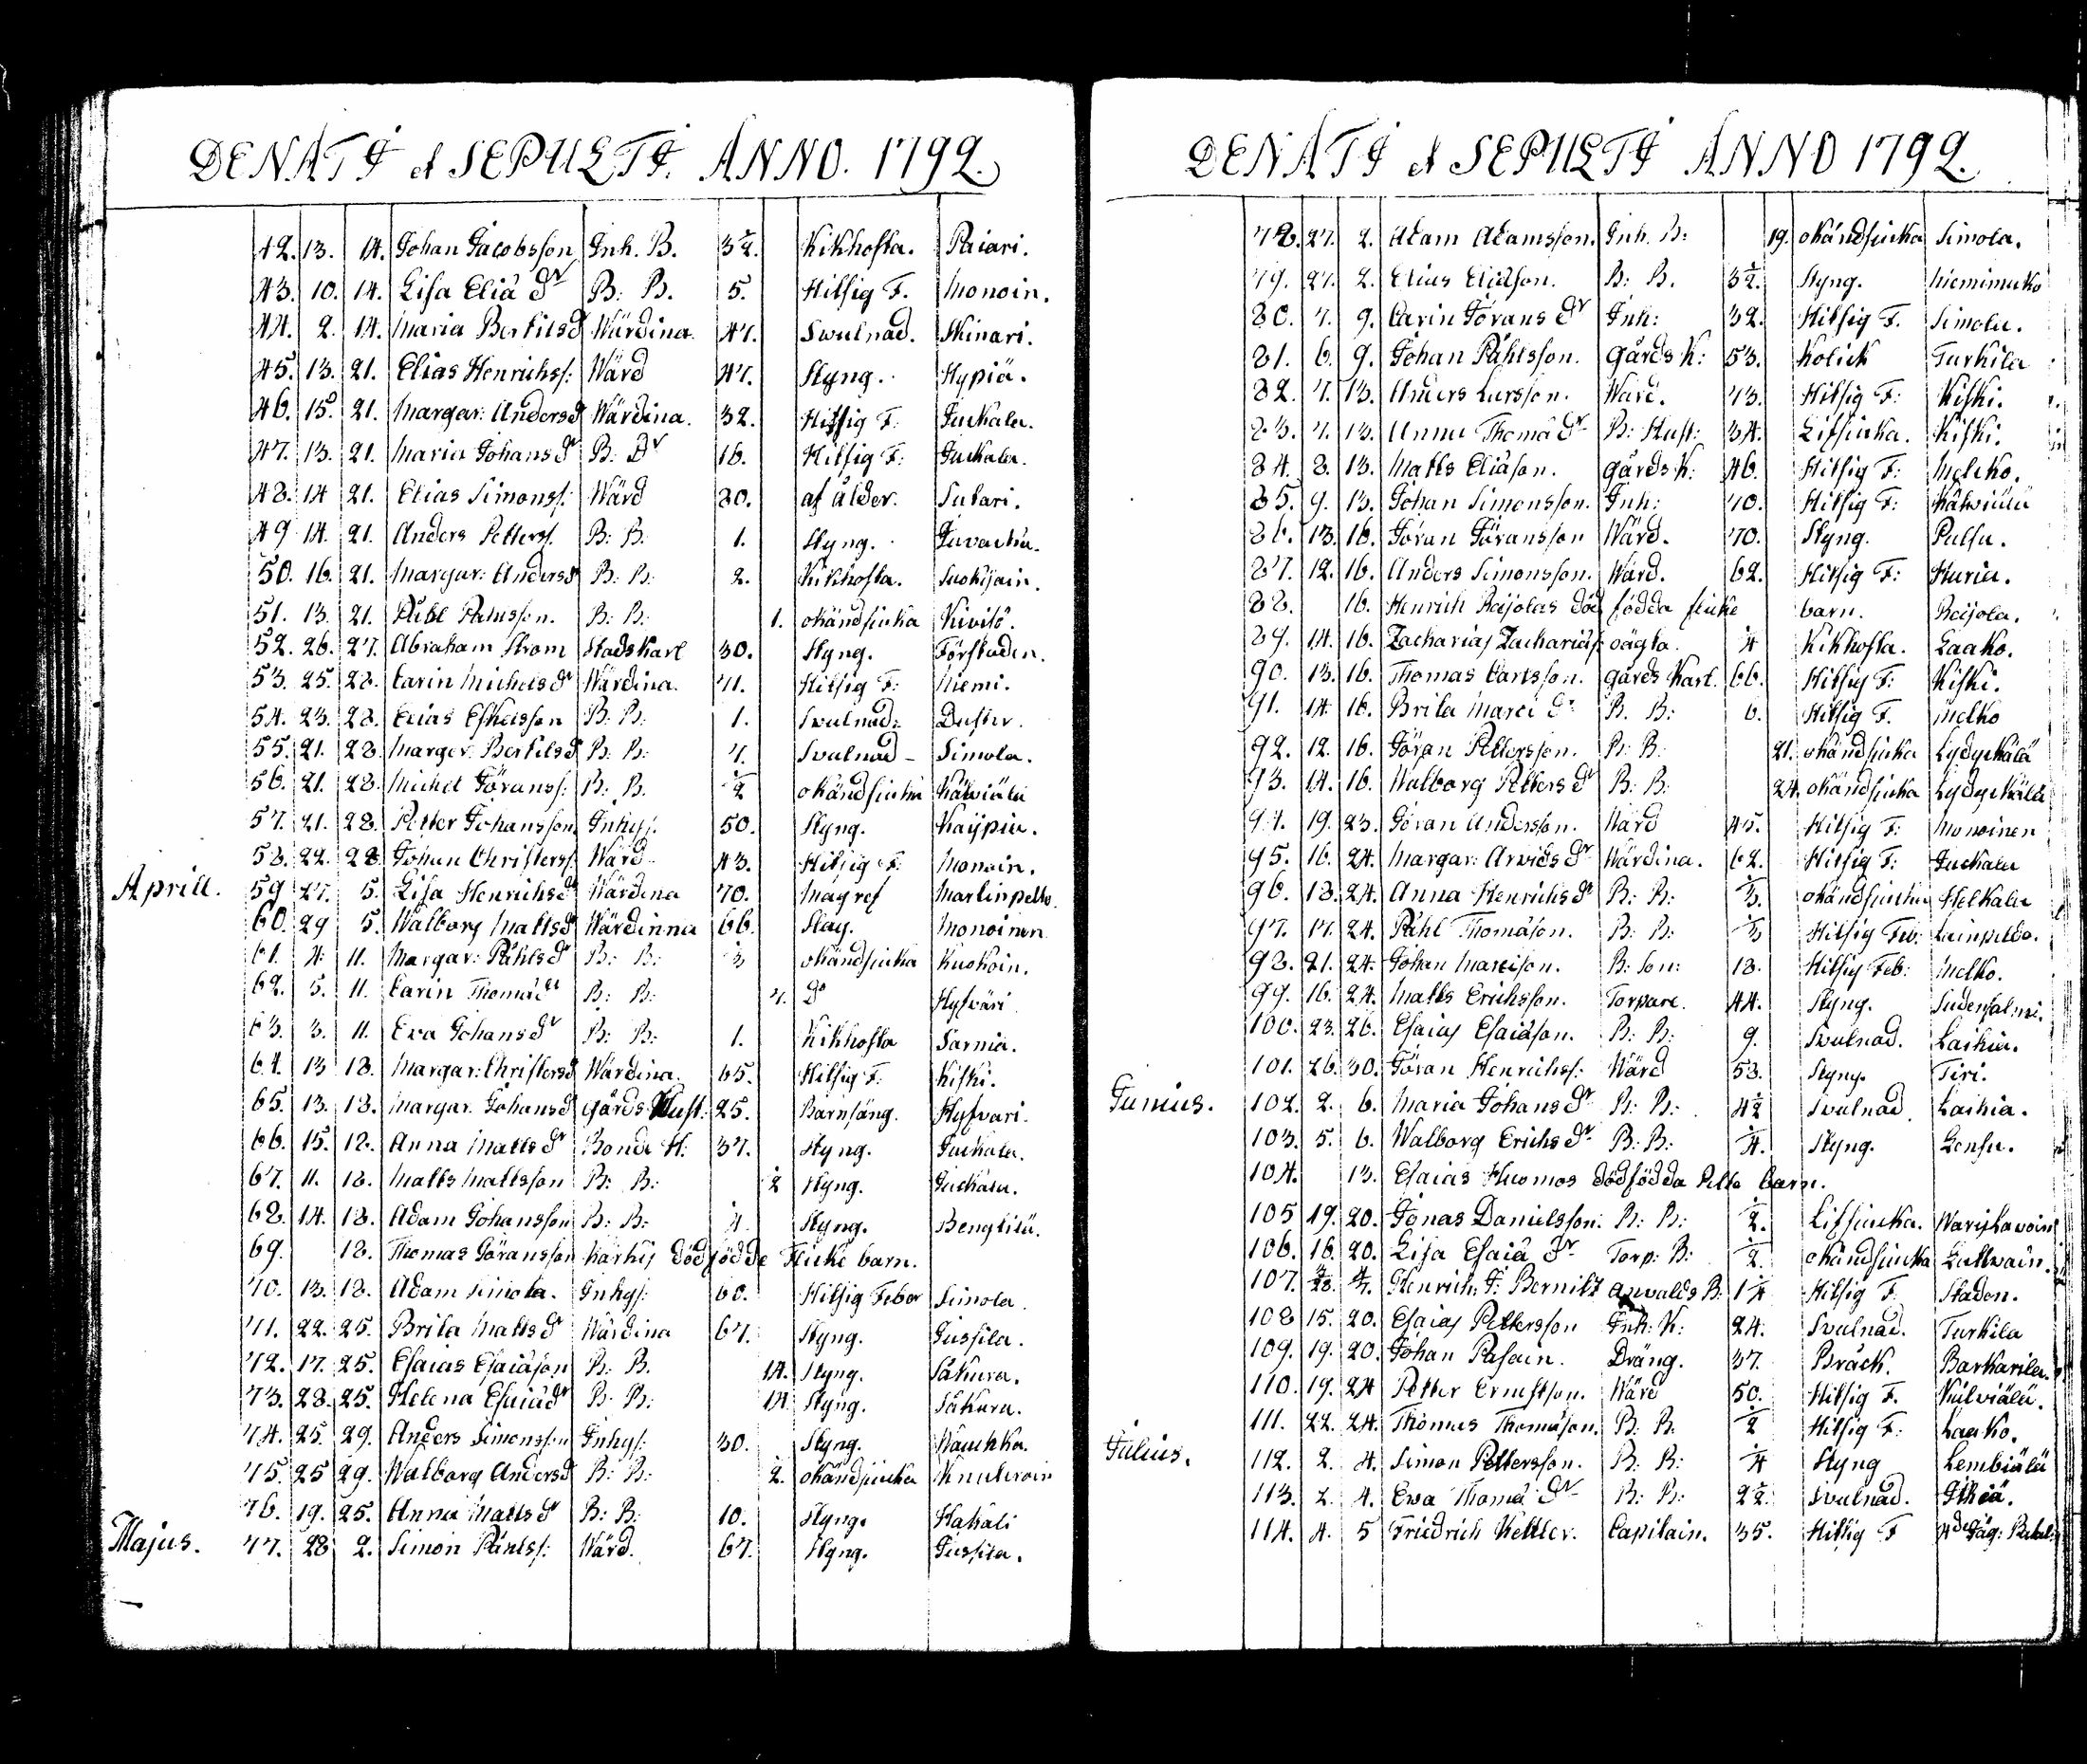 DENATI et SEPULTI. ANNO. 1792.
42. 13. 14. Johan Jacobsson Inh. B. 3½. Kikhosta. Paiari.
43. 10. 14. Lisa Eliä Dr B: B. 5. Hitsig F. Monoin.
44. 2. 14. Maria Bertilsd Wärdina. 47. Swulnad. Skinari.
45. 13. 21. Elias Henrichss: Wärd 47. Styng. Hypiä.
46. 15. 21. Margar: Andersd Wärdina. 32. Hitsig F: Juckala.
47. 13. 21. Maria Johans Dr B: Dr 16. Hitsig F: Juckala.
48. 14 21. Elias Simonss: Wärd 80. af ålder. Sutari.
49 14. 21. Anders Petterss. B: B: 1. Styng.
50. 16. 21. Margar: Andersd B: B: 2. Kikhosta. Suokijain.
51. 13. 21. Påhl Påhlsson. B: B: 1. okändsiuka
52. 26. 27. Abraham Strom Stadskarl 30. Styng. Förstaden.
53. 25. 28. Carin Michels Dr Wärdina. 71. Hitsig F: Niemi.
54. 23. 28. Elias Eskelsson B: B: 1. Swulnad:
55. 21. 28. Margar. Bertilsd B: B: 7. Svulnad - Simola.
56. 21. 28. Michel Göranss: B: B. ½ okändsiuka Kälviälä
57. 21. 28. Petter Johansson Inhys: 50. Styng. Kaypia.
58. 22. 28 Johan Christerss: Wärd 43. Hitsig F: Monoin.
Aprill. 59 27. 5. Lisa Henrichsd Wärdina 70. Magref Martinpelto.
60. 29 5. Walborg Mattsd Wärdinna 66. Slag. Monoinen
61. 4. 11. Margar: Påhlsd B: B: okändsiuka Kuokoin.
62. 5. 11. Carin Thomäd B: B: 7. Do Hyfväri
63. 3. 11. Eva Johans Dr B: B: 1. Kikhosta Särniä.
64. 13 18. Margar: Christersd Wärdina. 65. Hitsig F: Kiski.
65. 13. 18. Margar. Johansd gårds Hust: 25. Barnsäng. Hyfvari.
66. 15. 18. Anna Matts Dr Bonde H: 37. Styng. Juckala.
67. 11. 18. Matts Mattsson B: B: ½ Styng. Juckala.
68. 14. 18. Adam Johansson B: B: Styng. Bengtilä.
69. 18. Thomas Göransson Karhus dödfödde flicke barn.
70. 13. 18. Adam Simola. Inhys: 60. Hitsig Feber Simola.
71. 22. 25. Brita Matts Dr Wärdina 67. Styng. Jussila.
72. 17. 25. Esaias Esaiäson B: B. 14. Styng. Säkura.
73. 23. 25. Helena Esaiäd B: B: 14. Styng. Säkura.
74. 25. 29. Anders Simonsson Inhys: 30. Styng. Wauhka.
75. 25 29. Walborg Andersd B: B: 2. okändsiuka
76. 19. 25. Anna Matts Dr B: B: 10. Styng.
Majus. 77. 28 2. Simon Påhlss: Wärd. 67. Styng. Jussila.
DENATI et SEPULTI ANNO 1792.
78. 27. 2. Adam Adamsson. Inh. B: 19. okändsiuka Simola.
79. 27. 2. Elias Eliäson. B: B. 3½. Styng. Niemimuko
80. 7. 9. Carin Görans Dr Inh: 32. Hitsig F. Simola.
81. 6. 9. Johan Påhlsson. gårds K: 53. Kolick Turkila
82. 7. 13. Anders Larsson. Wärd. 73. Hitsig F: Kiski.
83. 7. 13. Anna Thomä Dr B: Hust: 34. Lifsiuka. Kiski.
84. 8. 13. Matts Eliäson. gårds K: 46. Hitsig F: Melcko.
85. 9. 13. Johan Simonsson. Inh: 70. Hitsig F: Kälwiälä
86. 13. 16. Jöran Jöransson Wärd. 70. Styng. Pulsa.
87. 12. 16. Anders Simonsson. Wärd. 62. Hitsig F: Huria.
88. 16. Henrich Raijolas död födda flicke barn. Raijola.
89. 14. 16. Zacharias Zachariäs: oägta. ¼ Kikhosta. Laako.
90. 13. 16. Thomas Carlsson. gårds Karl. 66. Hitsig F: Kiski.
91. 14 16. Brita Marci Dr B. B: 6. Hitsig F. Melko
92. 12. 16. Göran Pettersson. B: B: 21. okändsiuka Lydyckälä
93. 14. 16. Walborg Petters Dr B: B: 24. okändsiuka Lydyckälä
94. 19. 23. Göran Andersson. Wärd 45. Hitsig F: Monoinen
95. 16. 24. Margar: Arvids Dr Wärdina. 62. Hitsig F: Juckala
96. 18. 24. Anna Henrichs Dr B: B: ⅓. okändsiuka
97. 17. 24. Påhl Thomäson. B: B: ⅓ Hitsig Feb: Lainpelto.
98. 21. 24. Johan Marcison. B: Son: 18. Hitsig Feb: Melko.
99. 16. 24. Matts Erichsson. Torpare. 44. Styng. Sudensalmi.
100. 23. 26. Esaias Esaiäson. B: B: 9. Svulnad. Laihia.
101. 26. 30. Jöran Henrichss: Wärd 58. Styng. Tiri.
Junius. 102. 2. 6. Maria Johans Dr B: B: 4½ Svulnad. Laihia.
103. 5. 6. Walborg Erichs Dr B: B: ¼. Styng. Lensu.
104. 13. Esaias Huomos dödfödda Pilte barn.
105 19. 20. Jonas Danielsson. B: B: ½. Lifsiuka.
106. 16. 20. Lisa Esaiä Dr Torp: B: ½. okändsiuka
107. Henrich: J: Bernilt B: 1¼ Hitsig F. Staden.
108 15. 20. Esaias Pettersson Inh: K: 24. Svulnad. Turkila
109. 19. 20. Johan Pasain. Dräng. 37. Bråck. Barkarila.
110. 19. 24 Petter Ernstson. Wärd 50. Hitsig F. Kälviälä.
111. 22. 24. Thomas Thomäson. B: B. ½ Hitsig F: Laako.
Julius. 112. 2. 4. Simon Pettersson. B: B: ¼ Styng Lembiälä
113. 2. 4. Ewa Thomä Dr B: B: 2½ Svulnad. Ihiä.
114. 4. 5 Friedrich Kettler. Capitain. 35. Hitsig F